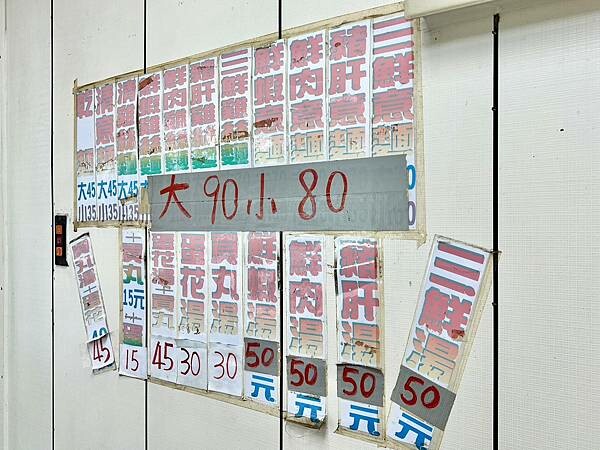 三鮮煮麵
豬肝煮麵
鮮肉煮麵
鮮蝦煮麵
三鮮雞
豬肝雞
鮮肉雞
鮮蝦雞
大45
小35
清煮麵
大45
小35
大45
小35
大90小80
三鮮湯
50元
豬肝湯
50元
鮮肉湯
50元
鮮蝦湯
50元
貢丸湯
30
蛋花湯
30
蛋花
45
丸15元
15
45